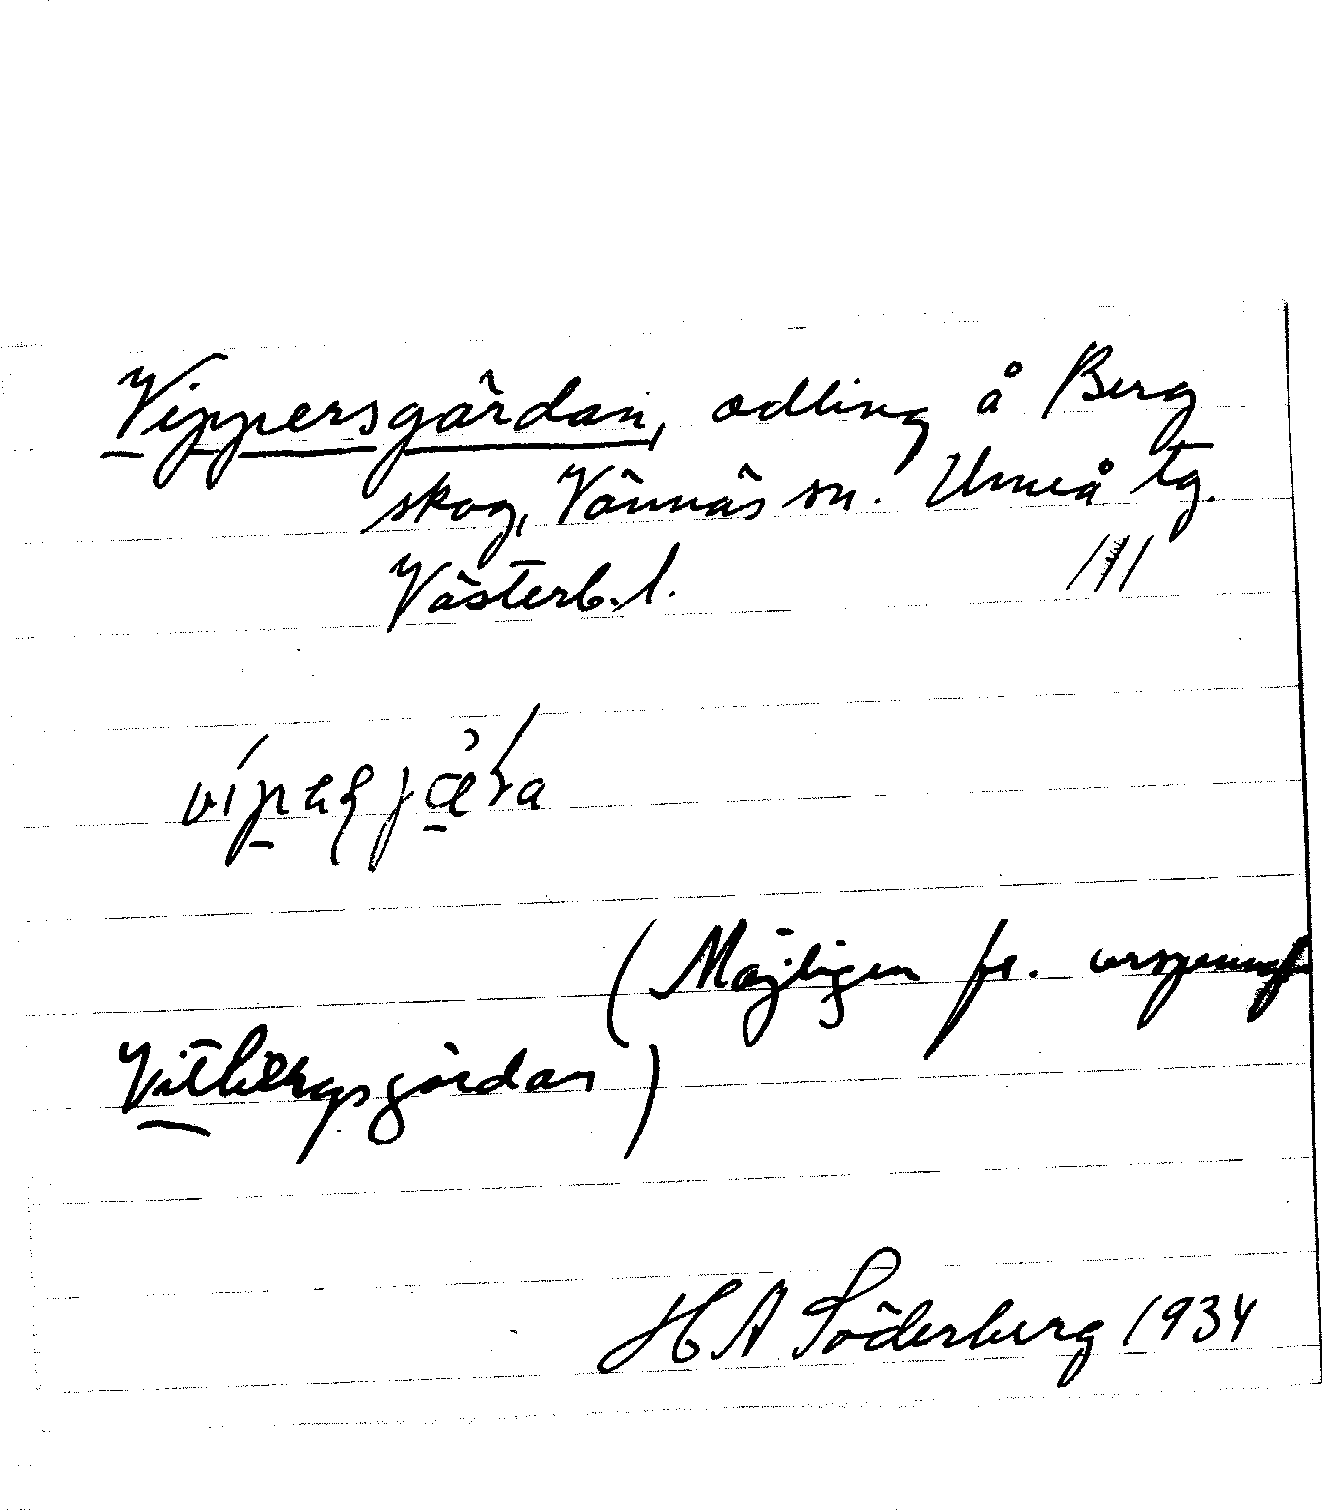 Vippersgärdan, odling å Berg
skog, Vännäs sn. Umeå tg.
Västerb. l.
(Möjligen fr. ursprungl
Vitbergsgärdan)
H A Söderberg 1934